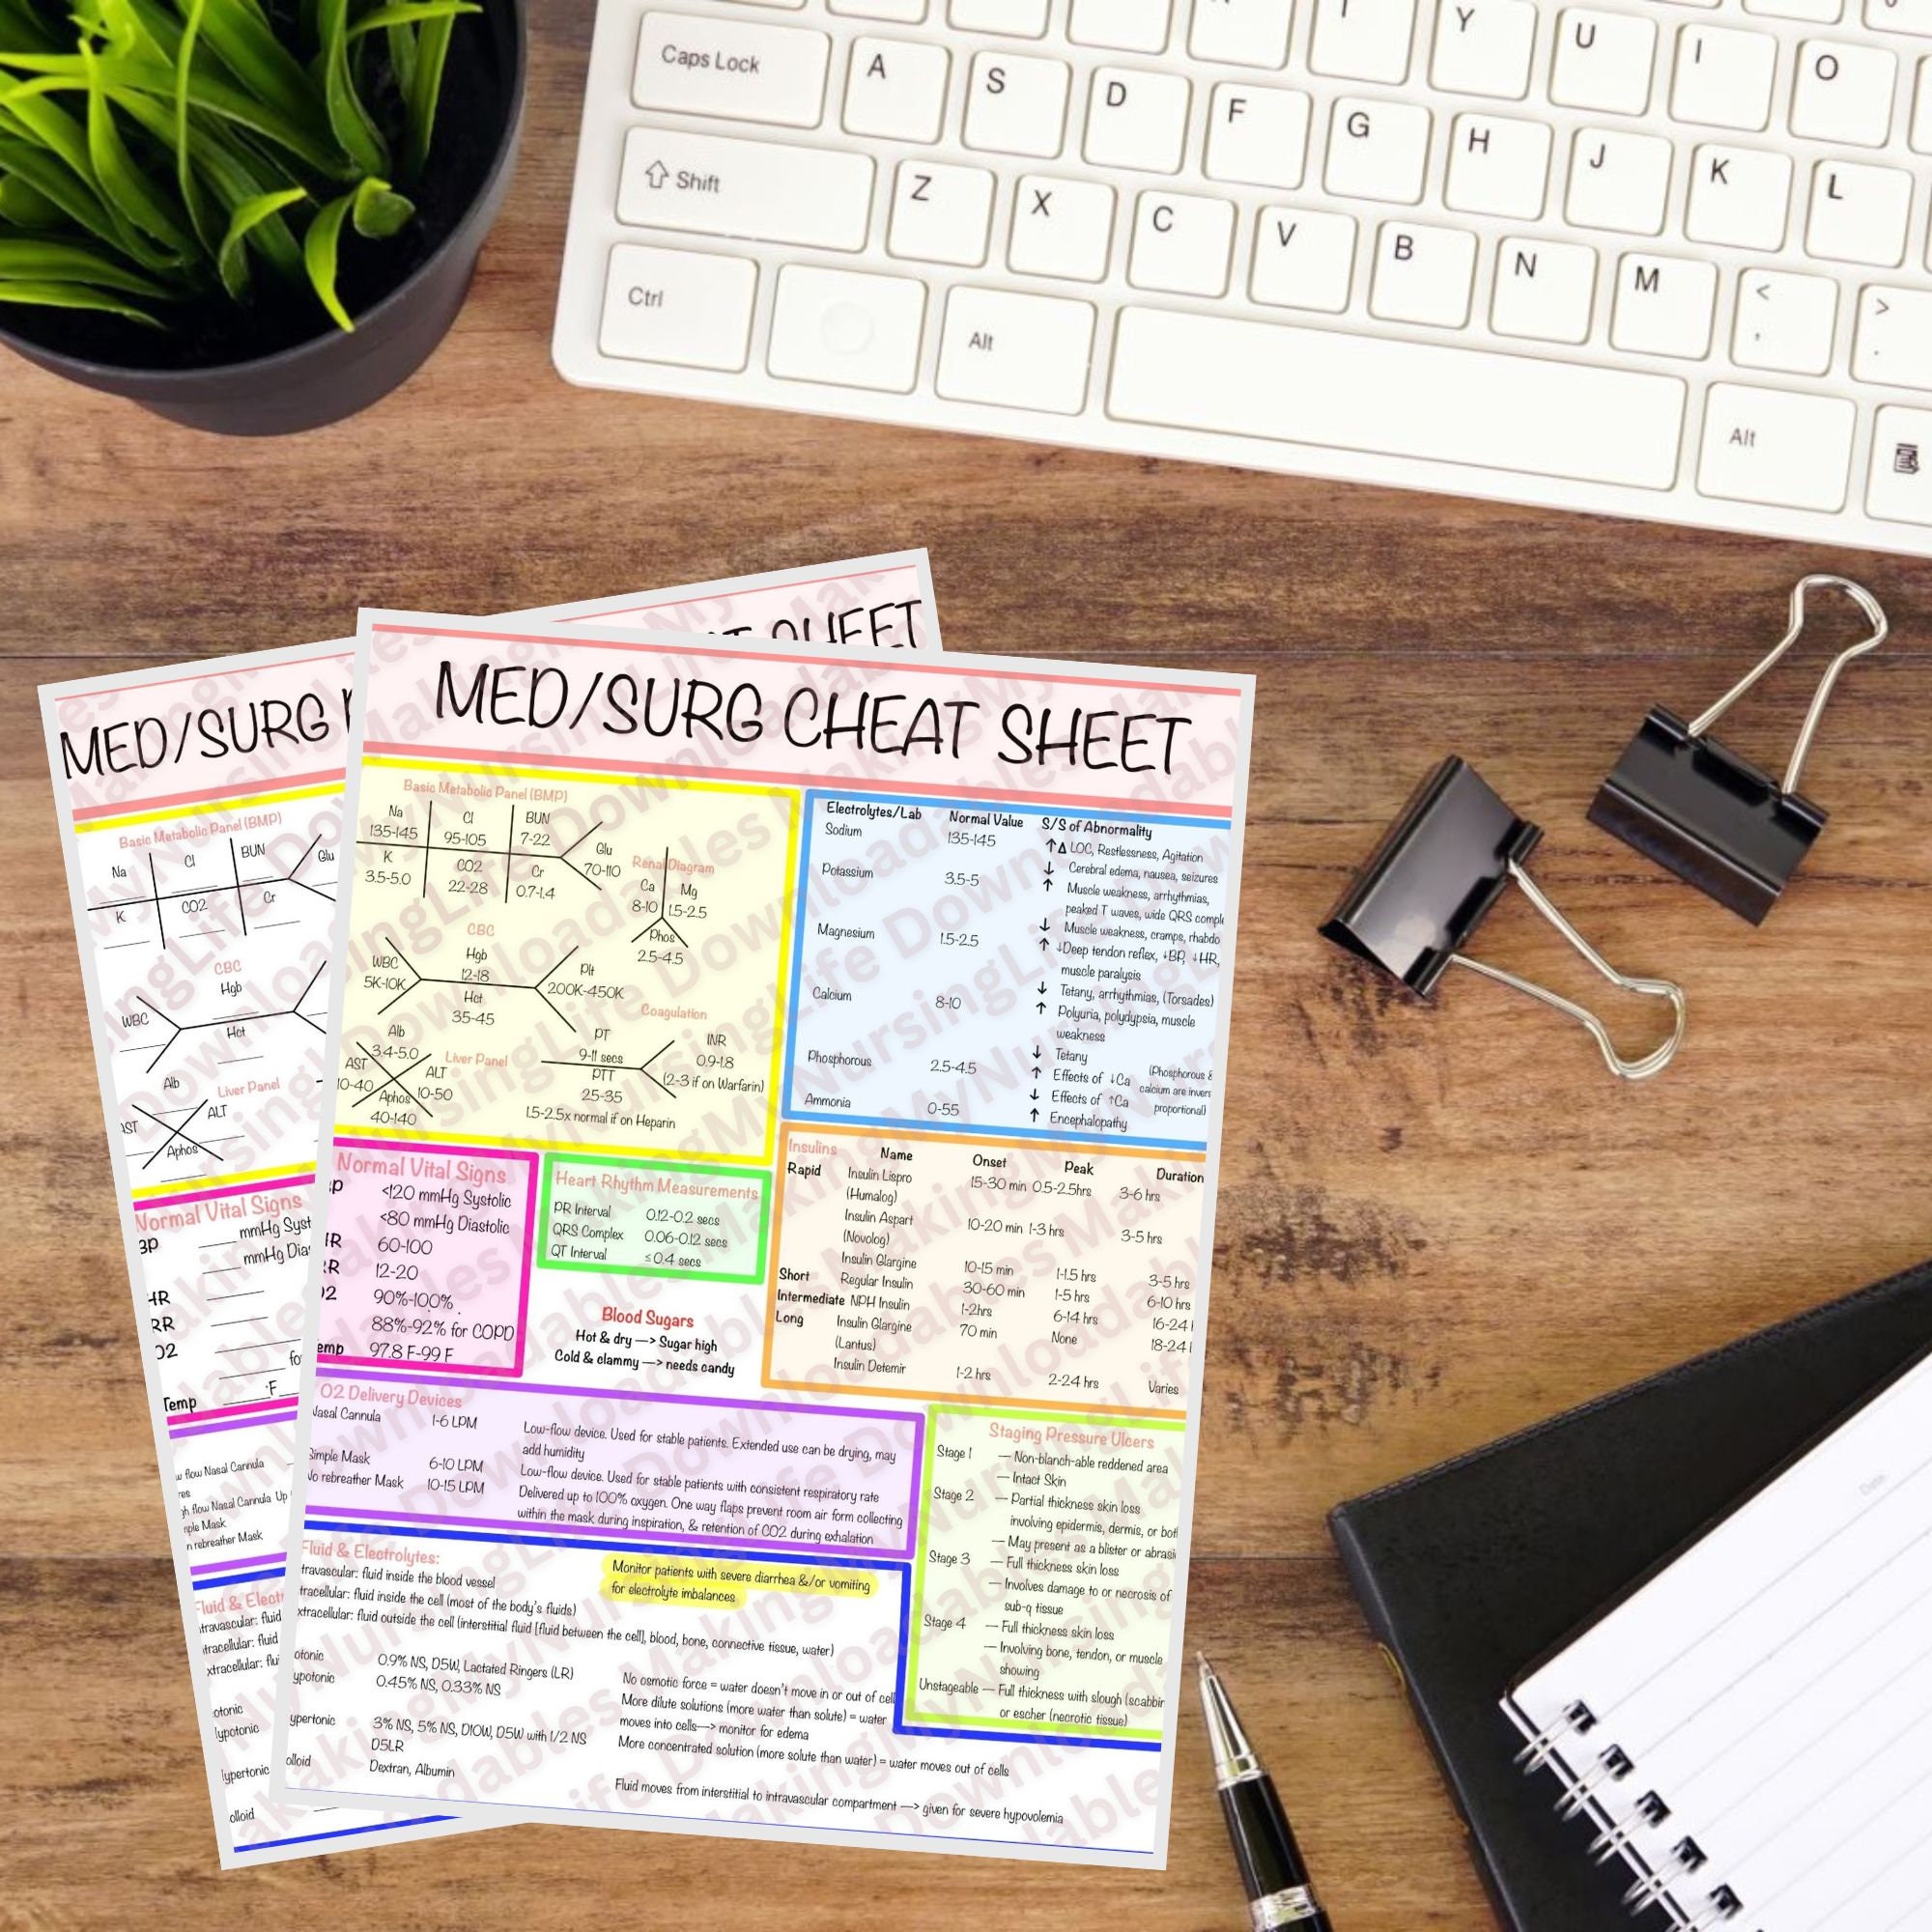 Y U I O
Caps Lock A S D F G H J K L
Shift Z X C V B N M < ,
> .
Ctrl Alt Alt
MED/SURG CHEAT SHEET
Basic Metabolic Panel (BMP)
Na Cl BUN
135-145 95-105 7-22
Glu
70-110
K CO2 Cr
3.5-5.0 22-28 0.7-1.4
Renal Diagram
Ca Mg
8-10 1.5-2.5
Phos
2.5-4.5
CBC
WBC Hgb Plt
5K-10K 12-18 200K-450K
Hct
35-45
Coagulation
PT INR
9-11 secs 0.9-1.8
PTT (2-3 if on Warfarin)
25-35
1.5-2.5x normal if on Heparin
Liver Panel
Alb
3.4-5.0
AST ALT
10-40 10-50
Aphos
40-140
Electrolytes/Lab Normal Value S/S of Abnormality
Sodium 135-145 ↑Δ LOC, Restlessness, Agitation
↓ Cerebral edema, nausea, seizures
Potassium 3.5-5 ↑ Muscle weakness, arrhythmias,
peaked T waves, wide QRS comple
↓ Muscle weakness, cramps, rhabdo
Magnesium 1.5-2.5 ↑ ↓Deep tendon reflex, ↓BP, ↓HR,
muscle paralysis
↓ Tetany, arrhythmias, (Torsades)
Calcium 8-10 ↑ Polyuria, polydypsia, muscle
weakness
↓ Tetany
Phosphorous 2.5-4.5 ↑ Effects of ↓Ca (Phosphorous &
↓ Effects of ↑Ca calcium are invers
proportional)
Ammonia 0-55 ↑ Encephalopathy
Normal Vital Signs
<120 mmHg Systolic
<80 mmHg Diastolic
HR 60-100
RR 12-20
O2 90%-100%
88%-92% for COPD
emp 97.8 F-99 F
Heart Rhythm Measurements
PR Interval 0.12-0.2 secs
QRS Complex 0.06-0.12 secs
QT Interval ≤0.4 secs
Blood Sugars
Hot & dry —> Sugar high
Cold & clammy —> needs candy
Insulins Name Onset Peak Duration
Rapid Insulin Lispro 15-30 min 0.5-2.5hrs 3-6 hrs
(Humalog)
Insulin Aspart 10-20 min 1-3 hrs 3-5 hrs
(Novolog)
Insulin Glargine 10-15 min 1-1.5 hrs 3-5 hrs
Short Regular Insulin 30-60 min 1-5 hrs 6-10 hrs
Intermediate NPH Insulin 1-2hrs 6-14 hrs 16-24
Long Insulin Glargine 70 min None 18-24
(Lantus)
Insulin Detemir 1-2 hrs 2-24 hrs Varies
O2 Delivery Devices
Nasal Cannula 1-6 LPM Low-flow device. Used for stable patients. Extended use can be drying, may
add humidity
Simple Mask 6-10 LPM Low-flow device. Used for stable patients with consistent respiratory rate
No rebreather Mask 10-15 LPM Delivered up to 100% oxygen. One way flaps prevent room air form collecting
within the mask during inspiration, & retention of CO2 during exhalation
Staging Pressure Ulcers
Stage 1 — Non-blanch-able reddened area
— Intact Skin
Stage 2 — Partial thickness skin loss
involving epidermis, dermis, or bot
— May present as a blister or abrasi
Stage 3 — Full thickness skin loss
— Involves damage to or necrosis of
sub-q tissue
Stage 4 — Full thickness skin loss
— Involving bone, tendon, or muscle
showing
Unstageable — Full thickness with slough (scabbin
or escher (necrotic tissue)
Fluid & Electrolytes:
travascular: fluid inside the blood vessel
tracellular: fluid inside the cell (most of the body's fluids)
xtracellular: fluid outside the cell (interstitial fluid [fluid between the cell], blood, bone, connective tissue, water)
Monitor patients with severe diarrhea &/or vomiting
for electrolyte imbalances
otonic 0.9% NS, D5W, Lactated Ringers (LR) No osmotic force = water doesn't move in or out of cell
ypotonic 0.45% NS, 0.33% NS More dilute solutions (more water than solute) = water
moves into cells—> monitor for edema
ypertonic 3% NS, 5% NS, D10W, D5W with 1/2 NS More concentrated solution (more solute than water) = water moves out of cells
D5LR
olloid Dextran, Albumin Fluid moves from interstitial to intravascular compartment —> given for severe hypovolemia
MED/SURG SHEET
Basic Metabolic Panel (BMP)
Na Cl BUN Glu
K CO2 Cr
CBC
WBC Hgb
Hct
Alb
Liver Panel
AST ALT
Aphos
Normal Vital Signs
BP mmHg Syst
mmHg Dia
HR
RR
O2
fo
Temp °F
w flow Nasal Cannula
res
gh flow Nasal Cannula Up
mple Mask
n rebreather Mask
Fluid & Electr
travascular: fluid
tracellular: fluid
xtracellular: flu
otonic
lypotonic
lypertonic
olloid
MakingMyNursingLife Downloadables